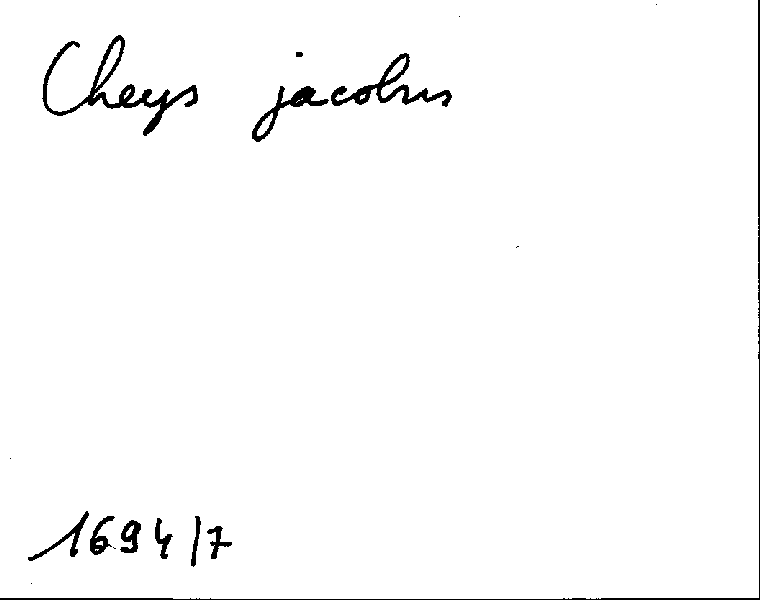 Cheys jacobus
1694/7